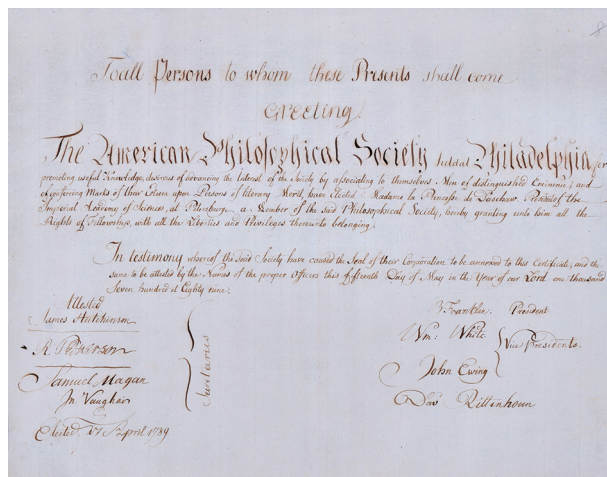 To all Persons to whom these Presents shall come
Greeting.
The American Philosophical Society held at Philadelphia for
promoting useful Knowledge, desirous of advancing the Interest of the Society by associating to themselves Men of distinguished Eminence, and
of conferring Marks of their Esteem upon Persons of literary Merit, have Elected Madame la Princesse de Daschaw, President of the
Imperial Academy of Sciences, at Petersburg, a Member of the said Philosophical Society, hereby granting unto him all the
Rights of Fellowship, with all the Liberties and Privileges thereunto belonging.
In testimony whereof the said Society have caused the Seal of their Corporation to be annexed to this Certificate, and the
same to be attested by the Names of the proper Officers this fifteenth Day of May in the Year of our Lord one thousand
Seven hundred & Eighty nine.
Attested
James Hutchinson
R Patterson
Samuel Magaw
Jn Vaughan
Secretaries
Elected 17 April 1789
B Franklin. President
Wm: White
John Ewing
Vice Presidents.
Dav Rittenhouse